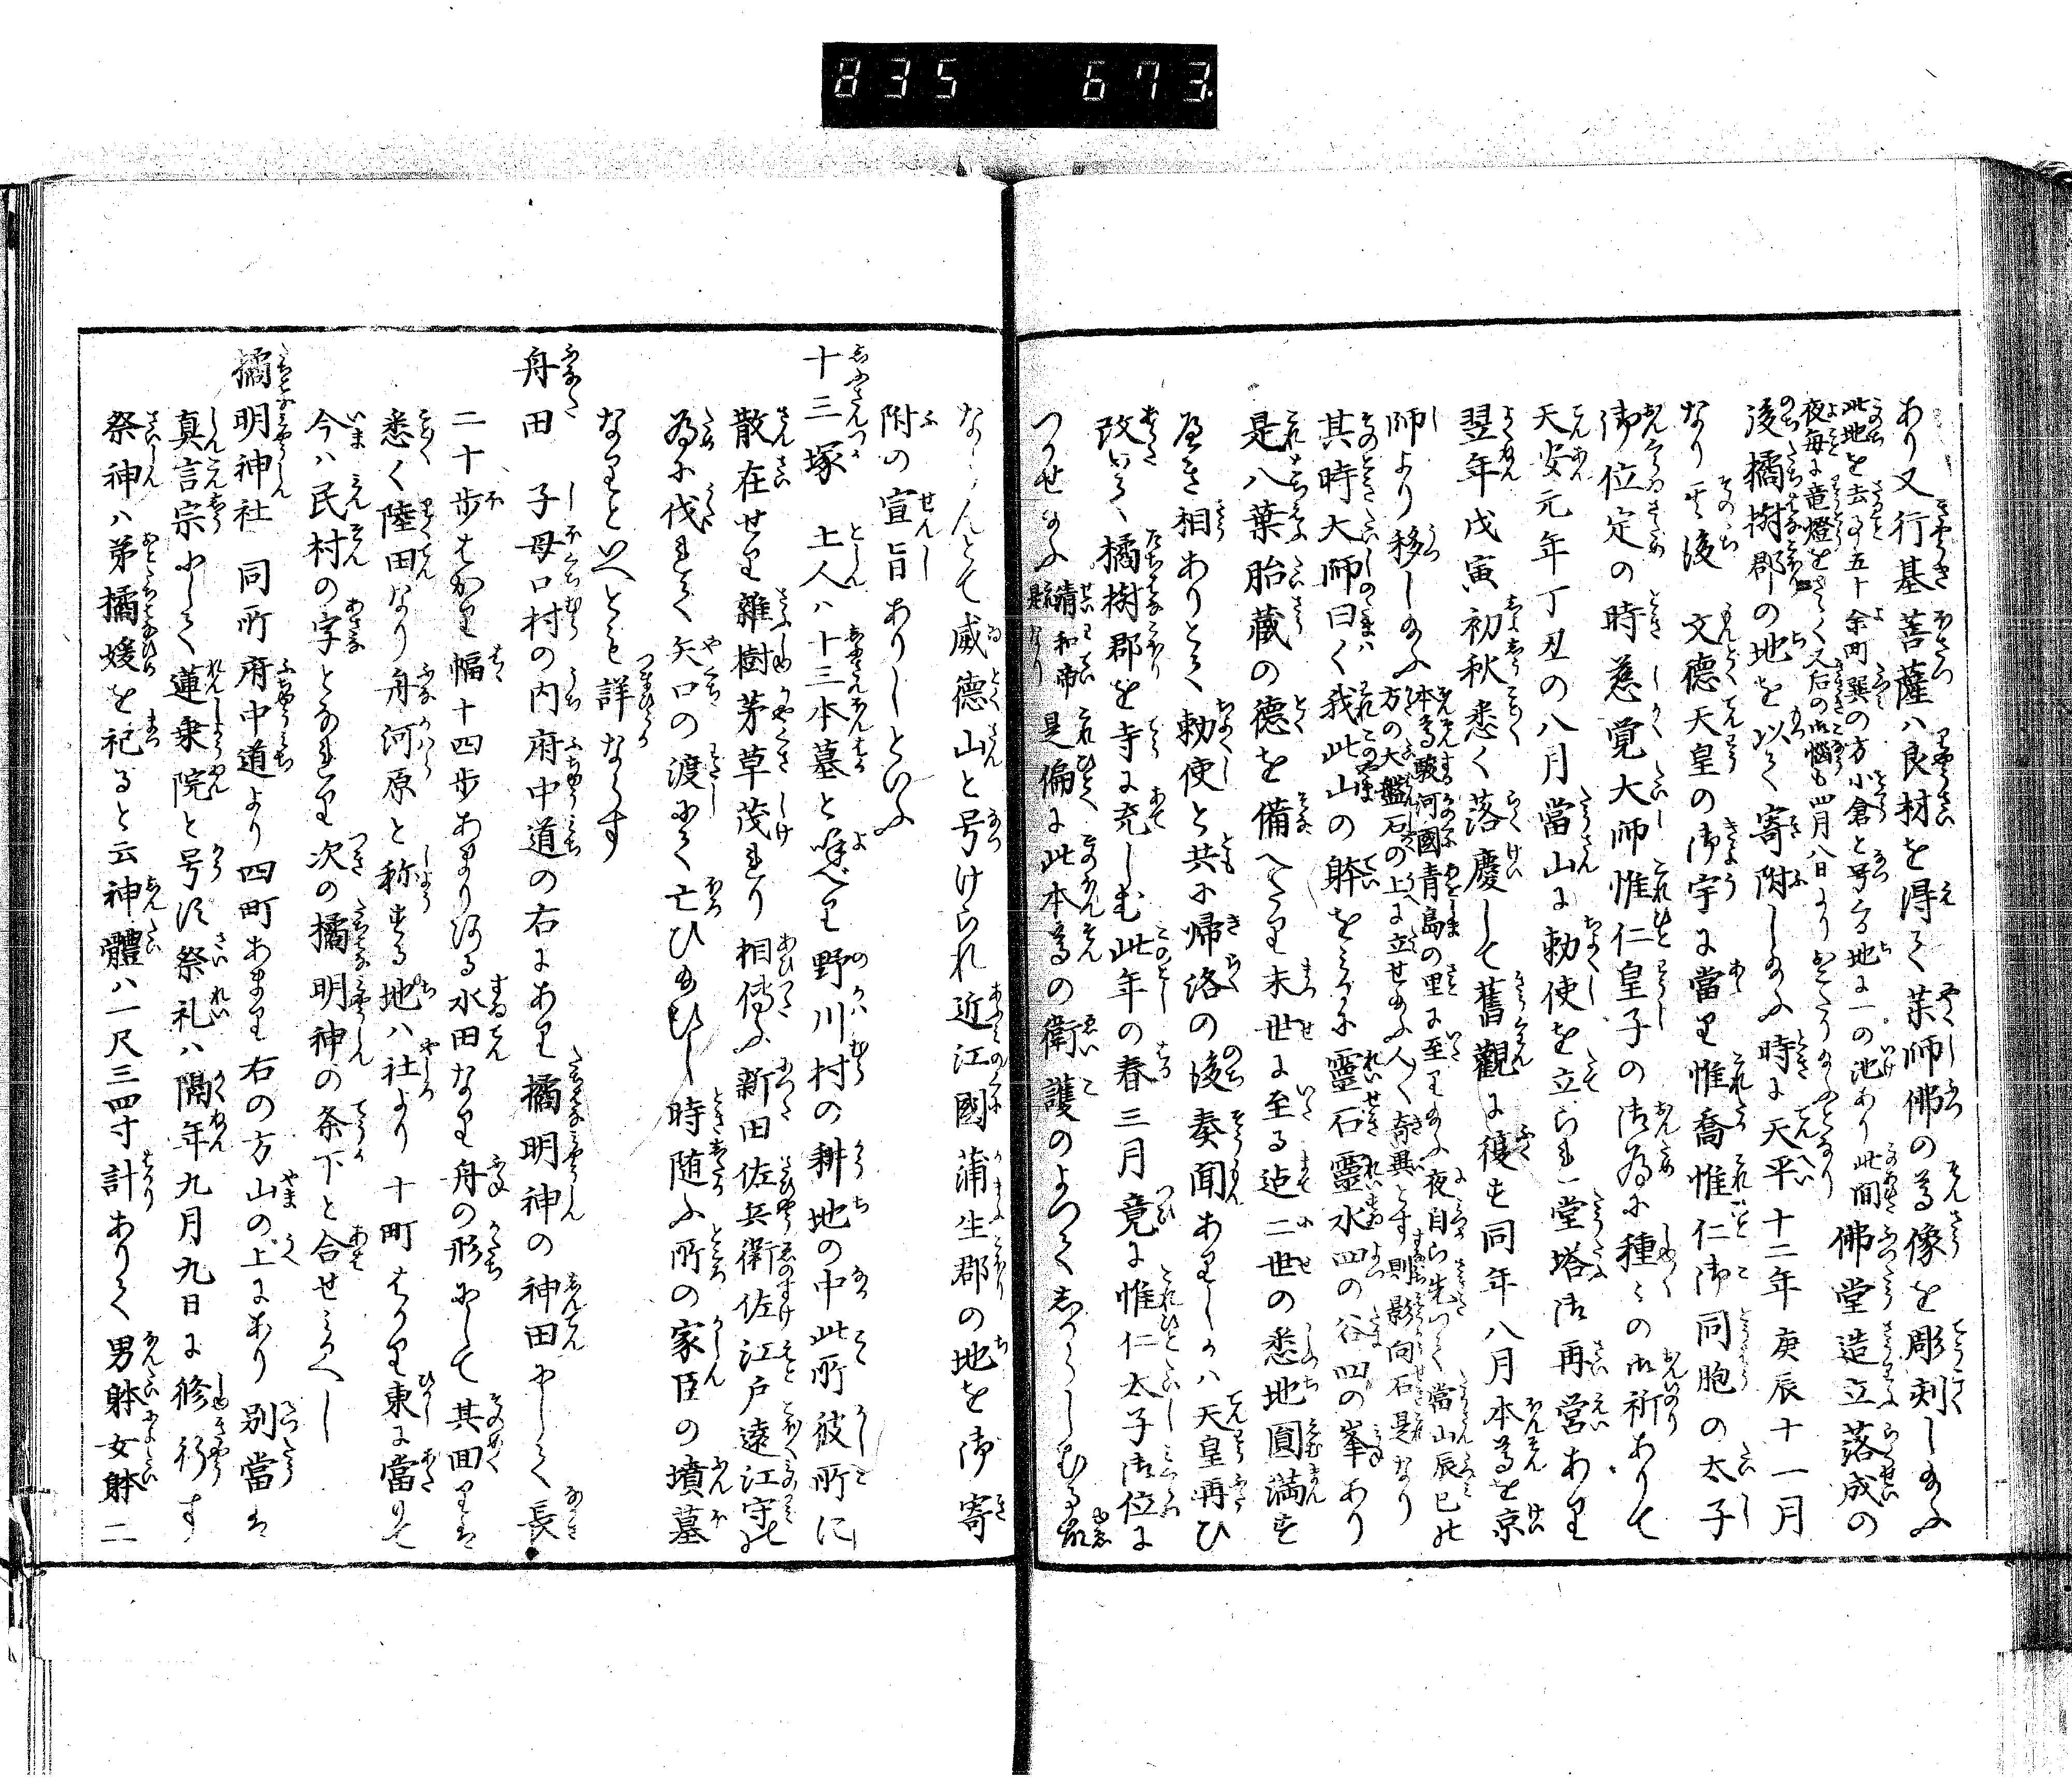 835 673
あり又行基菩薩ハ良材を得て薬師佛の尊像を彫刻し給ふ
此地を去事五十余町巽の方小倉と号る地に一の池あり此間
夜毎に竜燈をさゝく又后の御悩も四月八日より
佛堂造立落成の
後橘樹郡の地を以て寄附し給ふ時に天平十二年庚辰十一月
なり其後 文德天皇の御宇に當り惟喬惟仁御同胞の太子
御位定の時慈覚大师惟仁皇子の御為に種々の御祈ありて
天安元年丁丑の八月當山に勅使を立られ堂塔御再営あり
翌年戊寅初秋悉く落慶して舊觀に復す同年八月本尊を京
師より移し給ふ
本尊駿河國青島の里に至り給ふ夜自ら先つて當山辰巳の
方の大盤石の上に立せ給ふ人々奇異とす則影向石是なり
其時大师曰く我此山の躰をみるに靈石靈水四の谷四の峯あり
是八葉胎藏の德を備へたり末世に至る迠二世の悉地圓滿す
へき相ありとて勅使と共に帰洛の後奏聞ありしかハ天皇再ひ
改めて橘樹郡を寺に充しむ此年の春三月竟に惟仁太子御位に
つかせ給ふ
清和帝
是なり
是偏に此本尊の衛護のよつてしからしむる故
なんとて威德山と号けられ近江國蒲生郡の地を御寄
附の宣旨ありしといふ
十三塚 土人ハ十三本墓と喚へり野川村の耕地の中此所彼所に
散在せり雜樹茅草茂れり相傳ふ新田佐兵衛佐江戸遠江守の
為に伐れて矢口の渡にて亡ひ給ひし時随ふ所の家臣の墳墓
なりといへとも詳ならす
舟田 子母口村の内府中道の右にあり橘明神の神田にして長
二十歩はかり幅十四歩あまりある水田なり舟の形にして其回りは
悉く陸田なり舟河原と称する地ハ社より十町はかり東に當りて
今ハ民村の字となれり次の橘明神の条下と合せみるへし
橘明神社 同所府中道より四町あまり右の方山の上にあり別當は
真言宗にして蓮乗院と号す祭礼ハ隔年九月九日に修行す
祭神ハ弟橘媛を祀ると云神體ハ一尺三四寸計ありて男躰女躰二